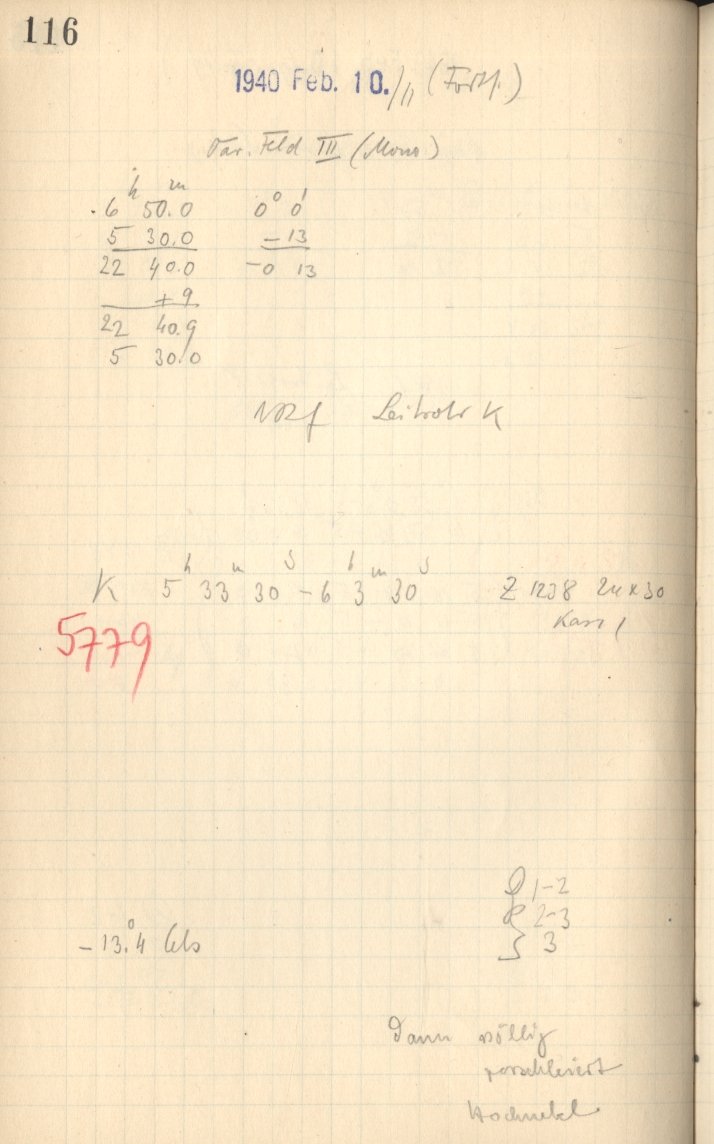 116
1940 Feb. 10./11 (Forts.)
Var. Feld III (Mono)
h m
6 50.0 0° 0'
5 30.0 -13
22 40.0 -0 13
+9
22 40.9
5 30.0
Leitrohr K
K 5h 33m 30s - 6h 3m 30s Z 1238 24x30
Kass 1
5779
1-2
2-3
-13.°4 Cels 3
Dann völlig
verschleiert
Hochnebel